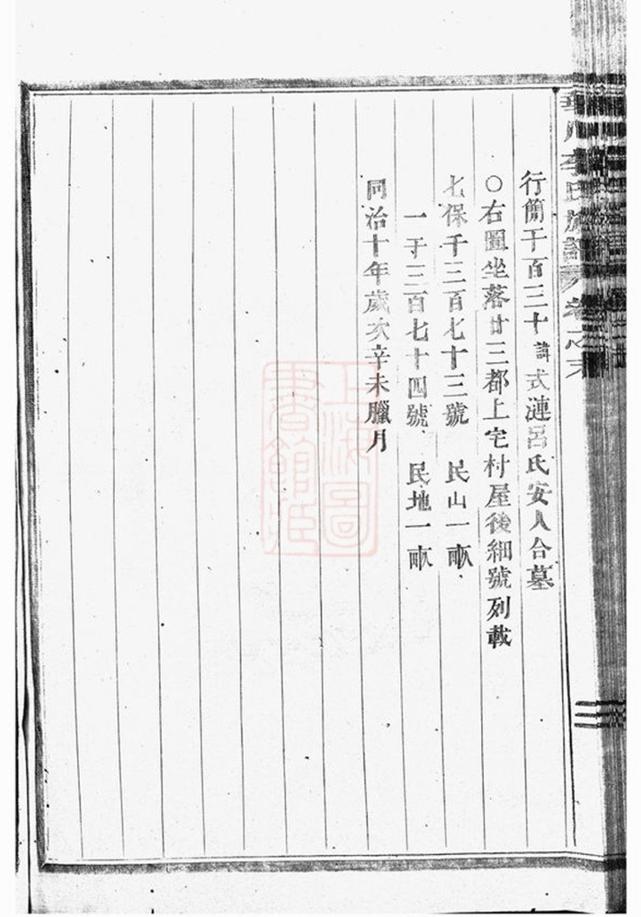 行簡千百三十諱式漣呂氏安人合墓
○右圖坐落廿三都上宅村屋後細號列載
七保千三百七十三號 民山一畝
一千三百七十四號 民地一畝
同治十年歲次辛未臘月
李氏族譜卷之末
上海圖書館藏